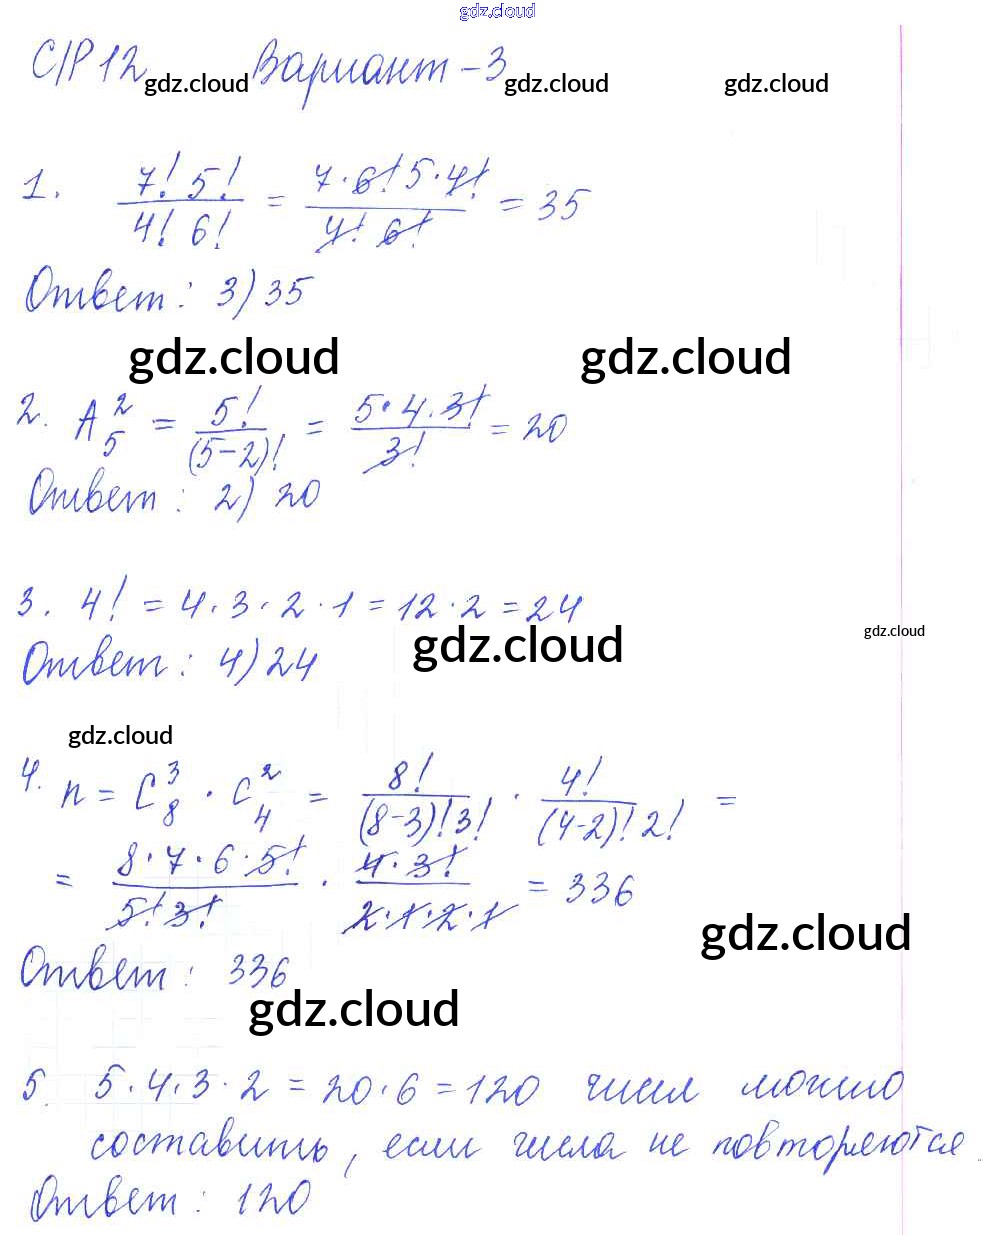 gdz.cloud
С/Р 12 Вариант - 3
gdz.cloud gdz.cloud gdz.cloud
1. 7! 5! / 4! 6! = 7·6! 5·4! / 4! 6! = 35
Ответ: 3) 35
gdz.cloud gdz.cloud
2. A₅² = 5! / (5-2)! = 5·4·3! / 3! = 20
Ответ: 2) 20
3. 4! = 4·3·2·1 = 12·2 = 24
gdz.cloud gdz.cloud
Ответ: 4) 24
gdz.cloud
4. n = C₈³ · C₄² = 8! / (8-3)! 3! · 4! / (4-2)! 2! =
= 8·7·6·5! / 5! 3! · 4·3! / 2·1·2·1 = 336
gdz.cloud
Ответ: 336
gdz.cloud
5. 5·4·3·2 = 20·6 = 120 чисел можно
составить, если числа не повторяются
Ответ: 120